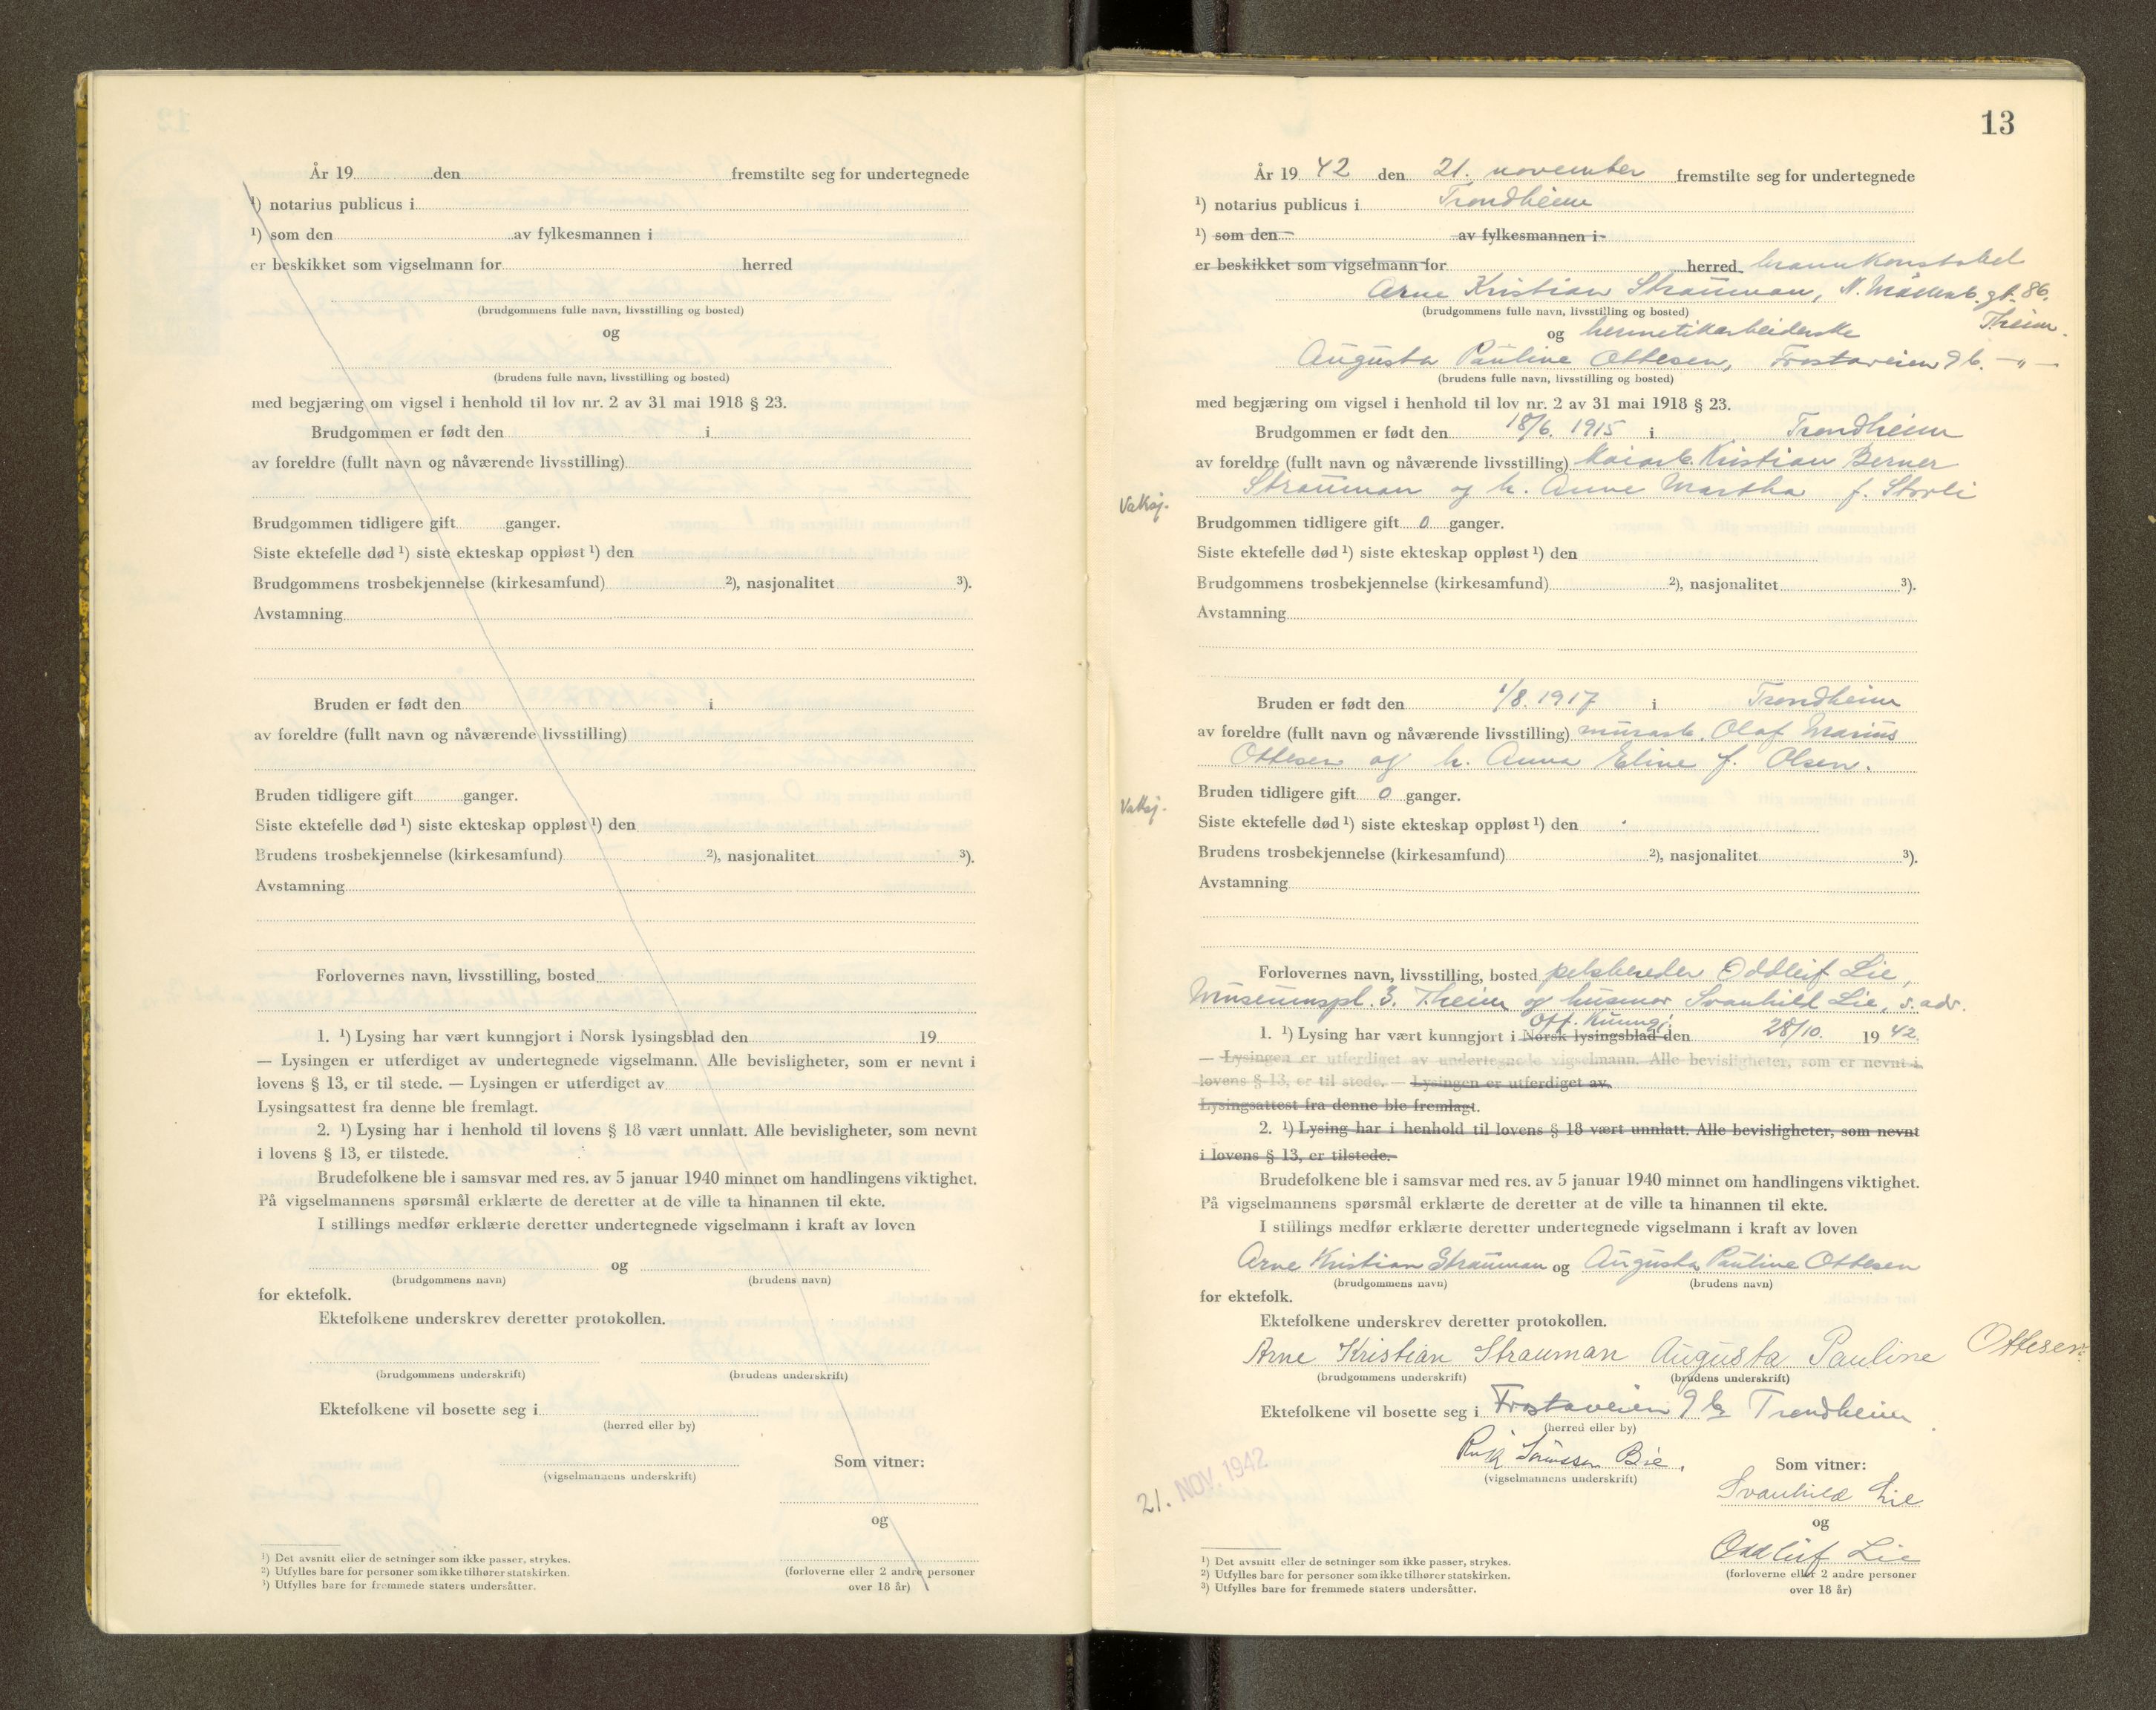 År 19 den fremstilte seg for undertegnede
¹) notarius publicus i
¹) som den av fylkesmannen i
er beskikket som vigselmann for herred
(brudgommens fulle navn, livsstilling og bosted)
og
(brudens fulle navn, livsstilling og bosted)
med begjæring om vigsel i henhold til lov nr. 2 av 31 mai 1918 § 23.
Brudgommen er født den i
av foreldre (fullt navn og nåværende livsstilling)
Brudgommen tidligere gift ganger.
Siste ektefelle død ¹) siste ekteskap oppløst ¹) den
Brudgommens trosbekjennelse (kirkesamfund) ²), nasjonalitet ³).
Avstamning
Bruden er født den i
av foreldre (fullt navn og nåværende livsstilling)
Bruden tidligere gift ganger.
Siste ektefelle død ¹) siste ekteskap oppløst ¹) den
Brudens trosbekjennelse (kirkesamfund) ²), nasjonalitet ³).
Avstamning
Forlovernes navn, livsstilling, bosted
1. ¹) Lysing har vært kunngjort i Norsk lysingsblad den 19
— Lysingen er utferdiget av undertegnede vigselmann. Alle bevisligheter, som er nevnt i
lovens § 13, er til stede. — Lysingen er utferdiget av
Lysingsattest fra denne ble fremlagt.
2. ¹) Lysing har i henhold til lovens § 18 vært unnlatt. Alle bevisligheter, som nevnt
i lovens § 13, er tilstede.
Brudefolkene ble i samsvar med res. av 5 januar 1940 minnet om handlingens viktighet.
På vigselmannens spørsmål erklærte de deretter at de ville ta hinannen til ekte.
I stillings medfør erklærte deretter undertegnede vigselmann i kraft av loven
og
(brudgommens navn) (brudens navn)
for ektefolk.
Ektefolkene underskrev deretter protokollen.
(brudgommens underskrift) (brudens underskrift)
Ektefolkene vil bosette seg i
(herred eller by)
Som vitner:
(vigselmannens underskrift)
og
¹) Det avsnitt eller de setninger som ikke passer, strykes.
²) Utfylles bare for personer som ikke tilhører statskirken.
³) Utfylles bare for fremmede staters undersåtter.
(forloverne eller 2 andre personer
over 18 år)
13
År 19 42 den 21. november fremstilte seg for undertegnede
¹) notarius publicus i Trondheim
¹) som den av fylkesmannen i
er beskikket som vigselmann for herred brannkonstabel
Arne Kristian Strauman, N. Møllenb. gt. 86.
(brudgommens fulle navn, livsstilling og bosted) Theim.
og hermetikarbeiderske
Augusta Pauline Ottesen, Frostaveien 9b. —"—
(brudens fulle navn, livsstilling og bosted)
med begjæring om vigsel i henhold til lov nr. 2 av 31 mai 1918 § 23.
Brudgommen er født den 18/6. 1915 i Trondheim
av foreldre (fullt navn og nåværende livsstilling) kaiarb. Kristian Berner
Strauman og h. Anne Martha f. Storli
Vaksj.
Brudgommen tidligere gift 0 ganger.
Siste ektefelle død ¹) siste ekteskap oppløst ¹) den
Brudgommens trosbekjennelse (kirkesamfund) ²), nasjonalitet ³).
Avstamning
Bruden er født den 1/8. 1917 i Trondheim
av foreldre (fullt navn og nåværende livsstilling) murarb. Olaf Marius
Ottesen og h. Anna Eline f. Olsen.
Bruden tidligere gift 0 ganger.
Vaksj.
Siste ektefelle død ¹) siste ekteskap oppløst ¹) den
Brudens trosbekjennelse (kirkesamfund) ²), nasjonalitet ³).
Avstamning
Forlovernes navn, livsstilling, bosted pelsbereder Oddleif Lie,
Museumspl. 3. Theim og husmor Svanhild Lie, s. adr.
Off. Kunngj.
1. ¹) Lysing har vært kunngjort i Norsk lysingsblad den 28/10. 19 42.
— Lysingen er utferdiget av undertegnede vigselmann. Alle bevisligheter, som er nevnt i
lovens § 13, er til stede. — Lysingen er utferdiget av
Lysingsattest fra denne ble fremlagt.
2. ¹) Lysing har i henhold til lovens § 18 vært unnlatt. Alle bevisligheter, som nevnt
i lovens § 13, er tilstede.
Brudefolkene ble i samsvar med res. av 5 januar 1940 minnet om handlingens viktighet.
På vigselmannens spørsmål erklærte de deretter at de ville ta hinannen til ekte.
I stillings medfør erklærte deretter undertegnede vigselmann i kraft av loven
Arne Kristian Strauman og Augusta Pauline Ottesen
(brudgommens navn) (brudens navn)
for ektefolk.
Ektefolkene underskrev deretter protokollen.
Arne Kristian Strauman Augusta Pauline Ottesen
(brudgommens underskrift) (brudens underskrift)
Ektefolkene vil bosette seg i Frostaveien 9b Trondheim
(herred eller by)
Bie. Som vitner:
(vigselmannens underskrift)
21. NOV. 1942
Svanhild Lie
og
Oddleif Lie
¹) Det avsnitt eller de setninger som ikke passer, strykes.
²) Utfylles bare for personer som ikke tilhører statskirken.
³) Utfylles bare for fremmede staters undersåtter.
(forloverne eller 2 andre personer
over 18 år)